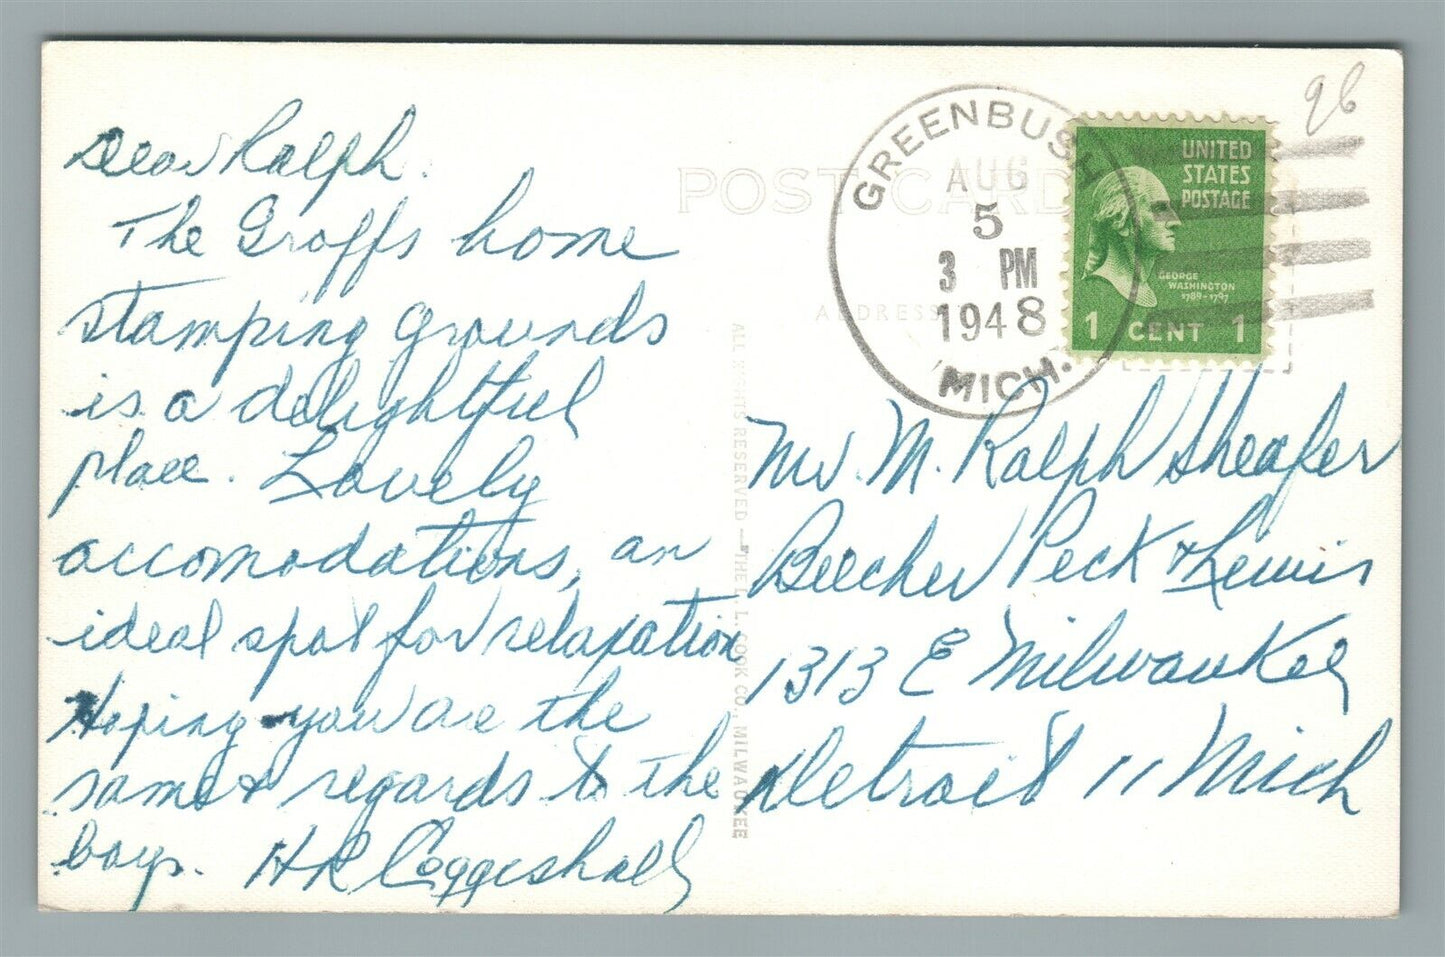 Dear Ralph.
The Groffs home
stamping grounds
is a delightful
place. Lovely
accomodations, an
ideal spot for relaxation
Hoping you are the
same & regards to the
boys. HR Coggeshall
POST CARD
ADDRESS
ALL RIGHTS RESERVED — THE L. L. COOK CO., MILWAUKEE
GREENBUSH
AUG
5
3 PM
1948
MICH.
UNITED
STATES
POSTAGE
GEORGE
WASHINGTON
1789-1797
1 CENT 1
96
Mr. M. Ralph Sheafer
Beecher Peck & Lewis
1313 E Milwaukee
Detroit 11 Mich